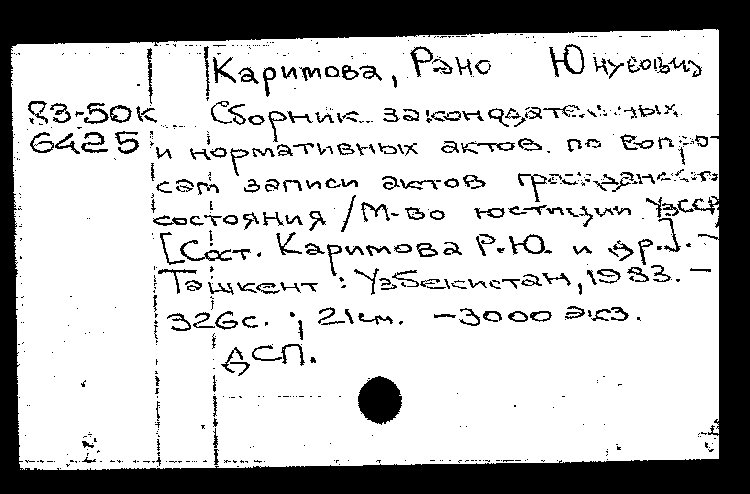 Каримова, Рано Юнусовна
83-50к Сборник законодательных
6425 и нормативных актов по вопро-
сам записи актов гражданского
состояния / М-во юстиции УзССР
[Сост. Каримова Р.Ю. и др.]. -
Ташкент : Узбекистан, 1983. -
326с. ; 21см. - 3000 экз.
ДСП.